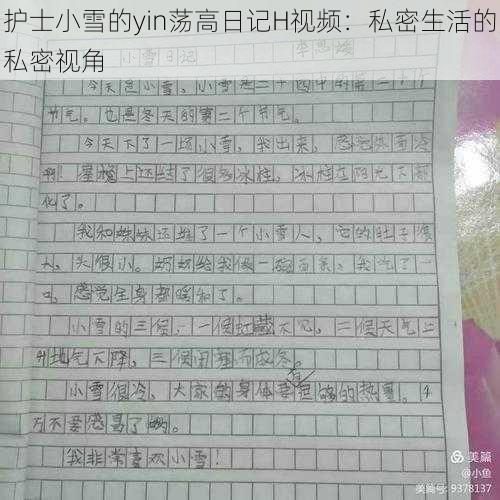 护士小雪的yin荡高日记H视频：私密生活的
私密视角
小雪日记
今天是小雪，小雪是二十四中的第二十个
节气。也是冬天的第二个节气。
今天下了一场小雪，我出来，感觉外面冷
啊！屋檐上还结了很多冰柱，冰柱在阳光下都
化了。
我和妹妹还堆了一个小雪人，它的肚子很
大，头很小。奶奶给我做一碗面条，我吃了一
口，感觉全身都暖和了。
小雪的三候：一候虹藏不见，二候天气上
升地气下降，三候闭塞而成冬。
小雪很冷，大家的身体要有足够的热量。千
万不要感冒了哟。
我非常喜欢小雪！
美篇
@小鱼
美篇号: 9378137